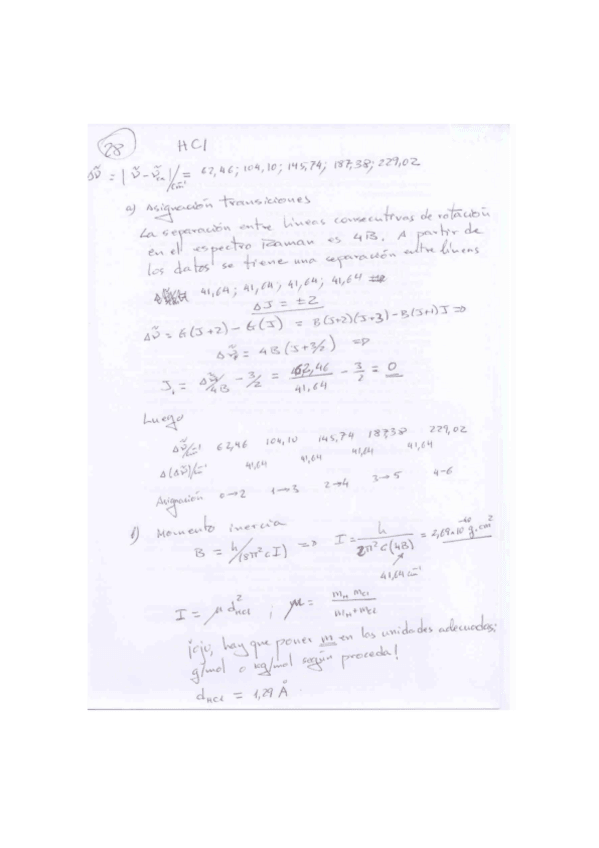 28 HCl
Δν̃ = |ν̃ - ν̃ₑₓ|/cm⁻¹ = 62,46; 104,10; 145,74; 187,38; 229,02
a) Asignación transiciones
La separación entre líneas consecutivas de rotación
en el espectro Raman es 4B. A partir de
los datos se tiene una separación entre líneas
41,64; 41,64; 41,64; 41,64
ΔJ = ±2
Δν̃ = G(J+2) - G(J) = B(J+2)(J+3) - B(J+1)J ⇒
Δν̃ = 4B(J+3/2) ⇒
J₁ = Δν̃/4B - 3/2 = 62,46/41,64 - 3/2 = 0
Luego
Δν̃/cm⁻¹ 62,46 104,10 145,74 187,38 229,02
Δ(Δν̃)/cm⁻¹ 41,64 41,64 41,64 41,64
Asignación 0→2 1→3 2→4 3→5 4-6
b) Momento inercia
B = h/(8π²cI) ⇒ I = h/2π²c(4B) = 2,69×10⁻⁴⁰ g.cm²
41,64 cm⁻¹
I = μ d²HCl ; μ = mH mCl/mH+mCl
¡ojo, hay que poner m en las unidades adecuadas;
g/mol o kg/mol según proceda!
dHCl = 1,29 Å